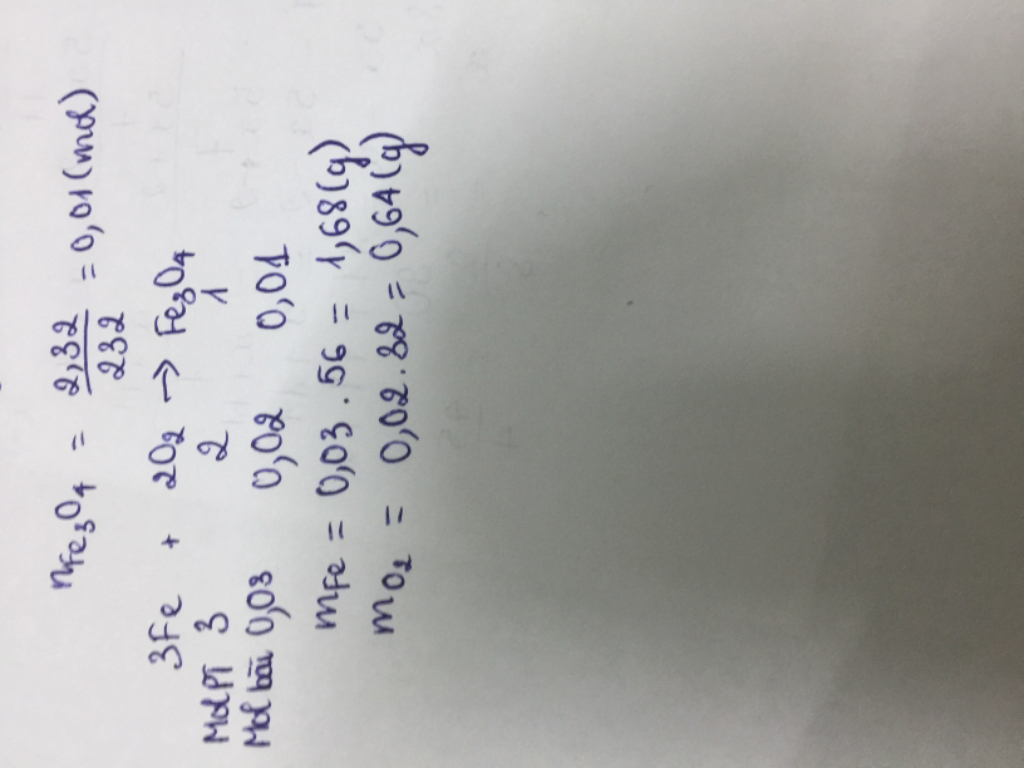 nFe₃O₄ = 2,32/232 = 0,01 (mol)
3Fe + 2O₂ → Fe₃O₄
Mol PT 3 2 1
Mol bài 0,03 0,02 0,01
mFe = 0,03 . 56 = 1,68 (g)
mO₂ = 0,02 . 32 = 0,64 (g)